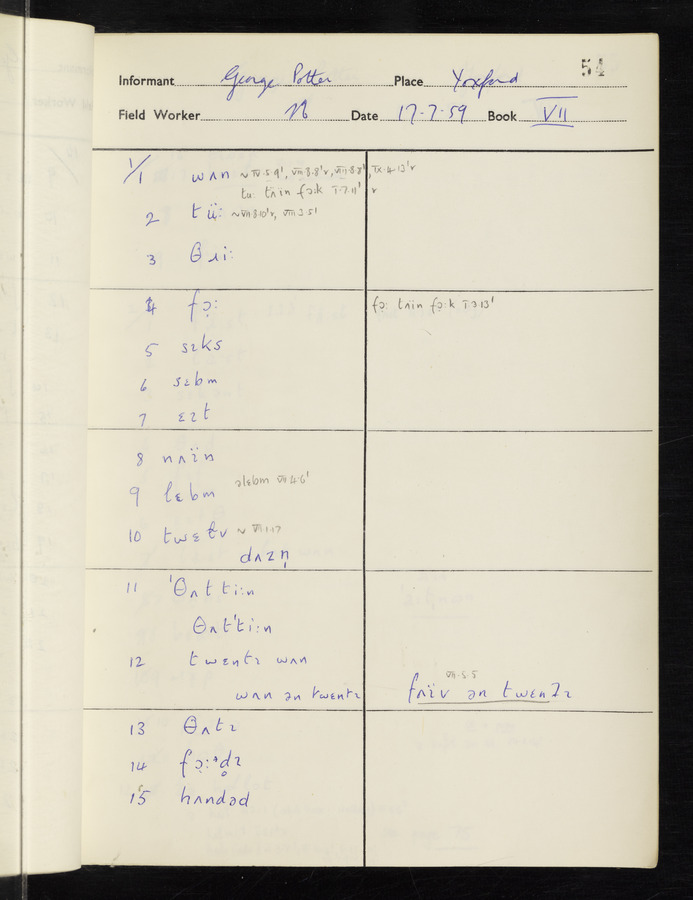 54
Informant George Potter Place Yoxford
Field Worker N Date 17-7-59 Book VII
1/1 wʌn ~ IV·5·9', VII·3·8'r, VII·8·8', IX·4·13'r
tu: tʌin fɔ:k I·7·11' r
2 tü: ~VII·8·10'r, VIII·3·5'
3 θɹi:
4 fɔ: fɔ: tʌin fɔ:k I·3·13'
5 sɪks
6 sɪbm
7 ɛɪt
8 nʌïn
9 lɛbm əlɛbm VII·4·6'
10 twɛɫv ~ VII·1·17
dʌzn̩
11 'θʌtti:n
θʌt'ti:n
12 twɛntɪ wʌn
wʌn ən twɛntɪ fʌïv ən twɛnʔɪ VII·5·5
13 θʌtɪ
14 fɔ:ᵊd̥ɪ
15 hʌndəd